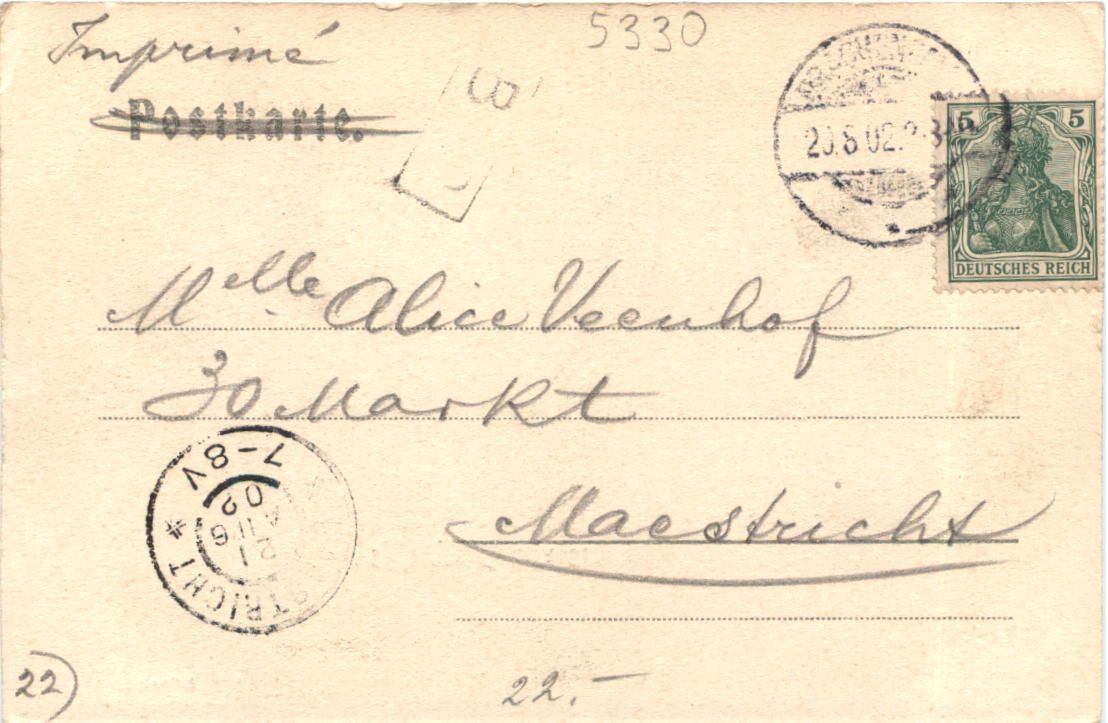 5330
Imprimé
Postkarte.
20.8.02.
5 5
DEUTSCHES REICH
Melle. Alice Veenhof
30 Markt
Maestricht
7-8V
02
AUG
21
STRICHT
22
22.-